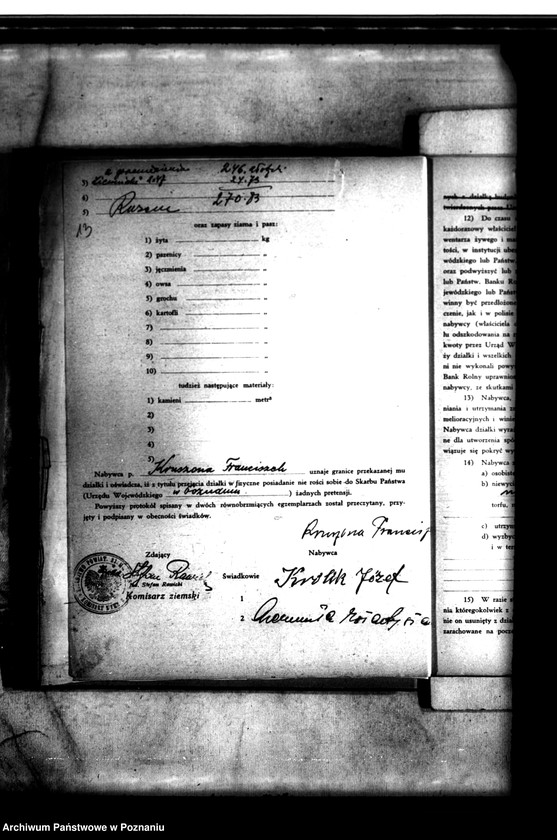 246.
3)
24.73
4)
270.83
5) Razem
13
oraz zapasy siana i pasz:
1) żyta kg
2) pszenicy „
3) jęczmienia „
4) owsa „
5) grochu „
6) kartofli „
7) „
8) „
9) „
10) „
tudzież następujące materjały:
1) kamieni metr³
2)
3)
4)
5)
Nabywca p. Franciszek uznaje granice przekazanej mu
działki i oświadcza, iż z tytułu przejęcia działki w fizyczne posiadanie nie rości sobie do Skarbu Państwa
(Urzędu Wojewódzkiego w Poznaniu) żadnych pretensji.
Powyższy protokół spisany w dwóch równobrzmiących egzemplarzach został przeczytany, przy-
jęty i podpisany w obecności świadków.
Zdający
Nabywca
Stefan Rawicki
Inż. Stefan Rawicki
Komisarz ziemski
Świadkowie
1 Józef
2
12) Do czasu
każdorazowy właściciel
wentarza żywego i
tości, w instytucji
wódzkiego lub Państw
oraz podwyższyć lub
lub Państw. Banku Ro
jewódzkiego lub Państ
winny być przedłożone
czenie, jak i w polisie
nabywcy (właściciela
łu odszkodowania na
kwoty przez Urząd W
ży działki i wszelkich
ni nie wykonali powy
Bank Rolny uprawnion
nabywcy, ze skutkami
13) Nabywca,
niania i utrzymania
melioracyjnych i
Nabywca działki wyra
ne dla utworzenia spó
wiązuje się pokryć wy
14) Nabywca
a) osobiste
b) niewyc
torfu,
c) utrzym
d) wyzby
i w te
15) W razie
nia któregokolwiek z
nie on usunięty z dział
zarachowane na pocz
Archiwum Państwowe w Poznaniu